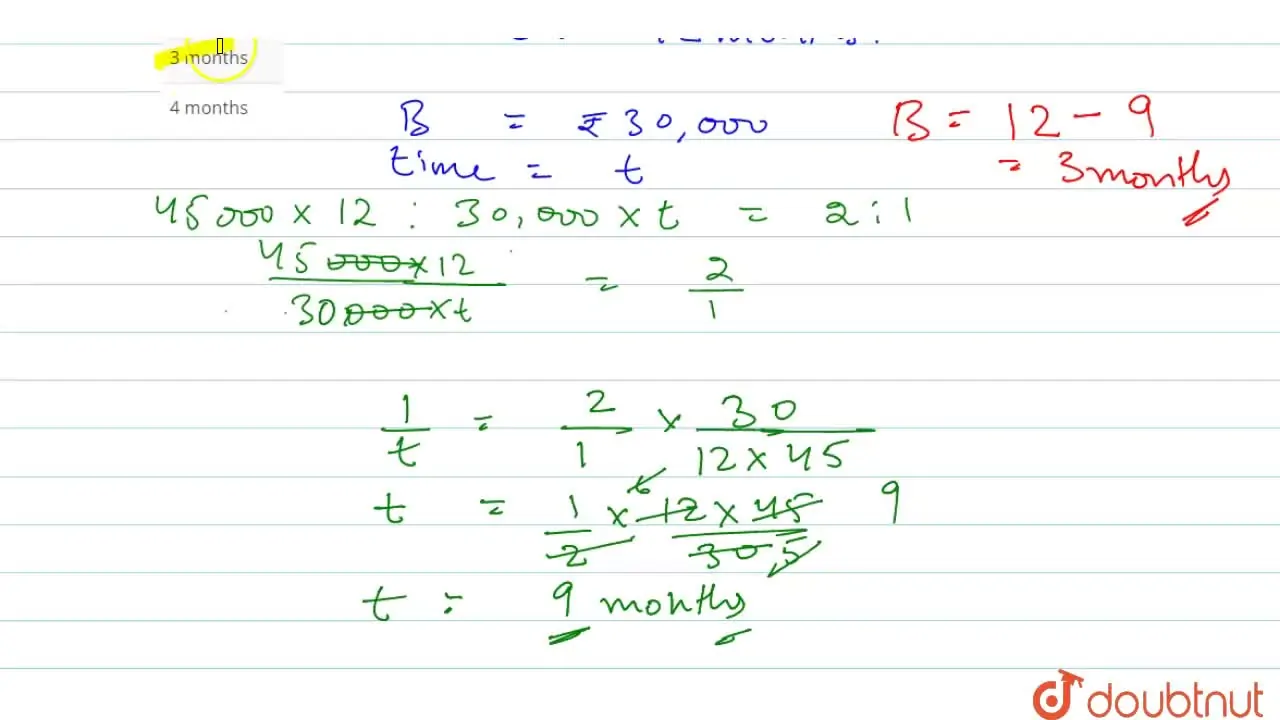 3 months
4 months
B = ₹ 30,000
time = t
B = 12 - 9
= 3 months
45000 × 12 : 30,000 × t = 2 : 1
45000 × 12 / 30,000 × t = 2 / 1
1 / t = 2 / 1 × 30 / 12 × 45
t = 1 / 2 × 12 × 45 / 30 6 5 9
t = 9 months
doubtnut